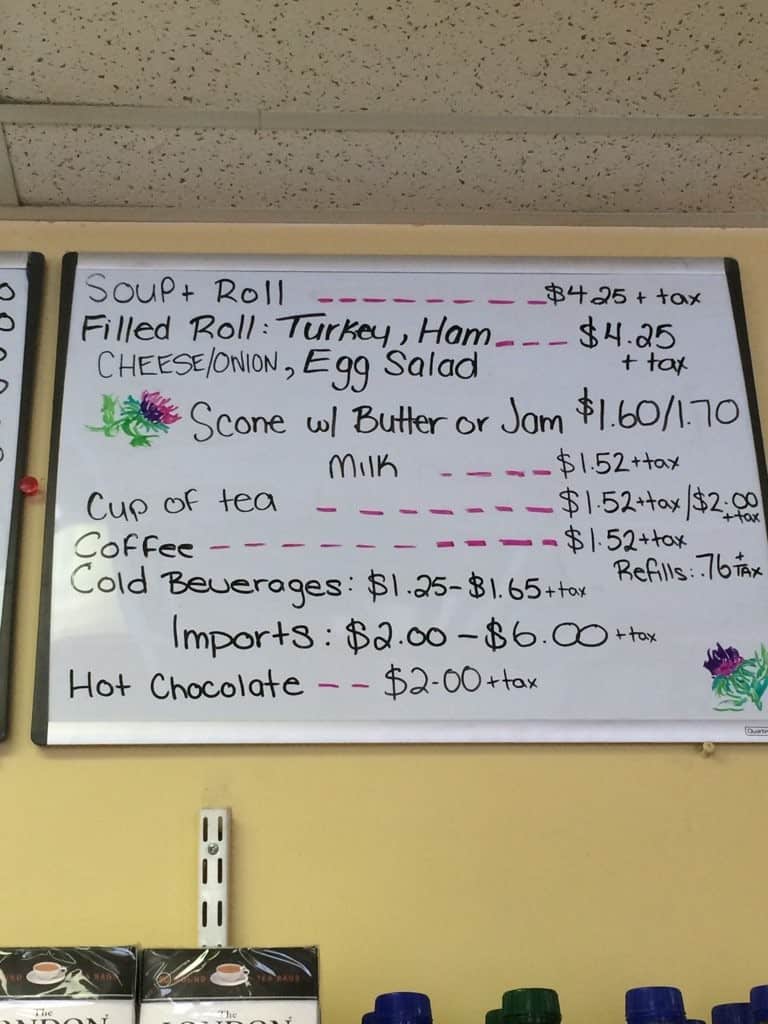 Soup + Roll $4.25 + tax
Filled Roll: Turkey, Ham $4.25
CHEESE/ONION, Egg Salad + tax
Scone w/ Butter or Jam $1.60/1.70
Milk $1.52+tax
Cup of tea $1.52+tax/$2.00
+tax
Coffee $1.52+tax
Refills: .76 + TAX
Cold Beverages: $1.25-$1.65+tax
Imports: $2.00-$6.00+tax
Hot Chocolate -- $2.00+tax
The
The
LONDON